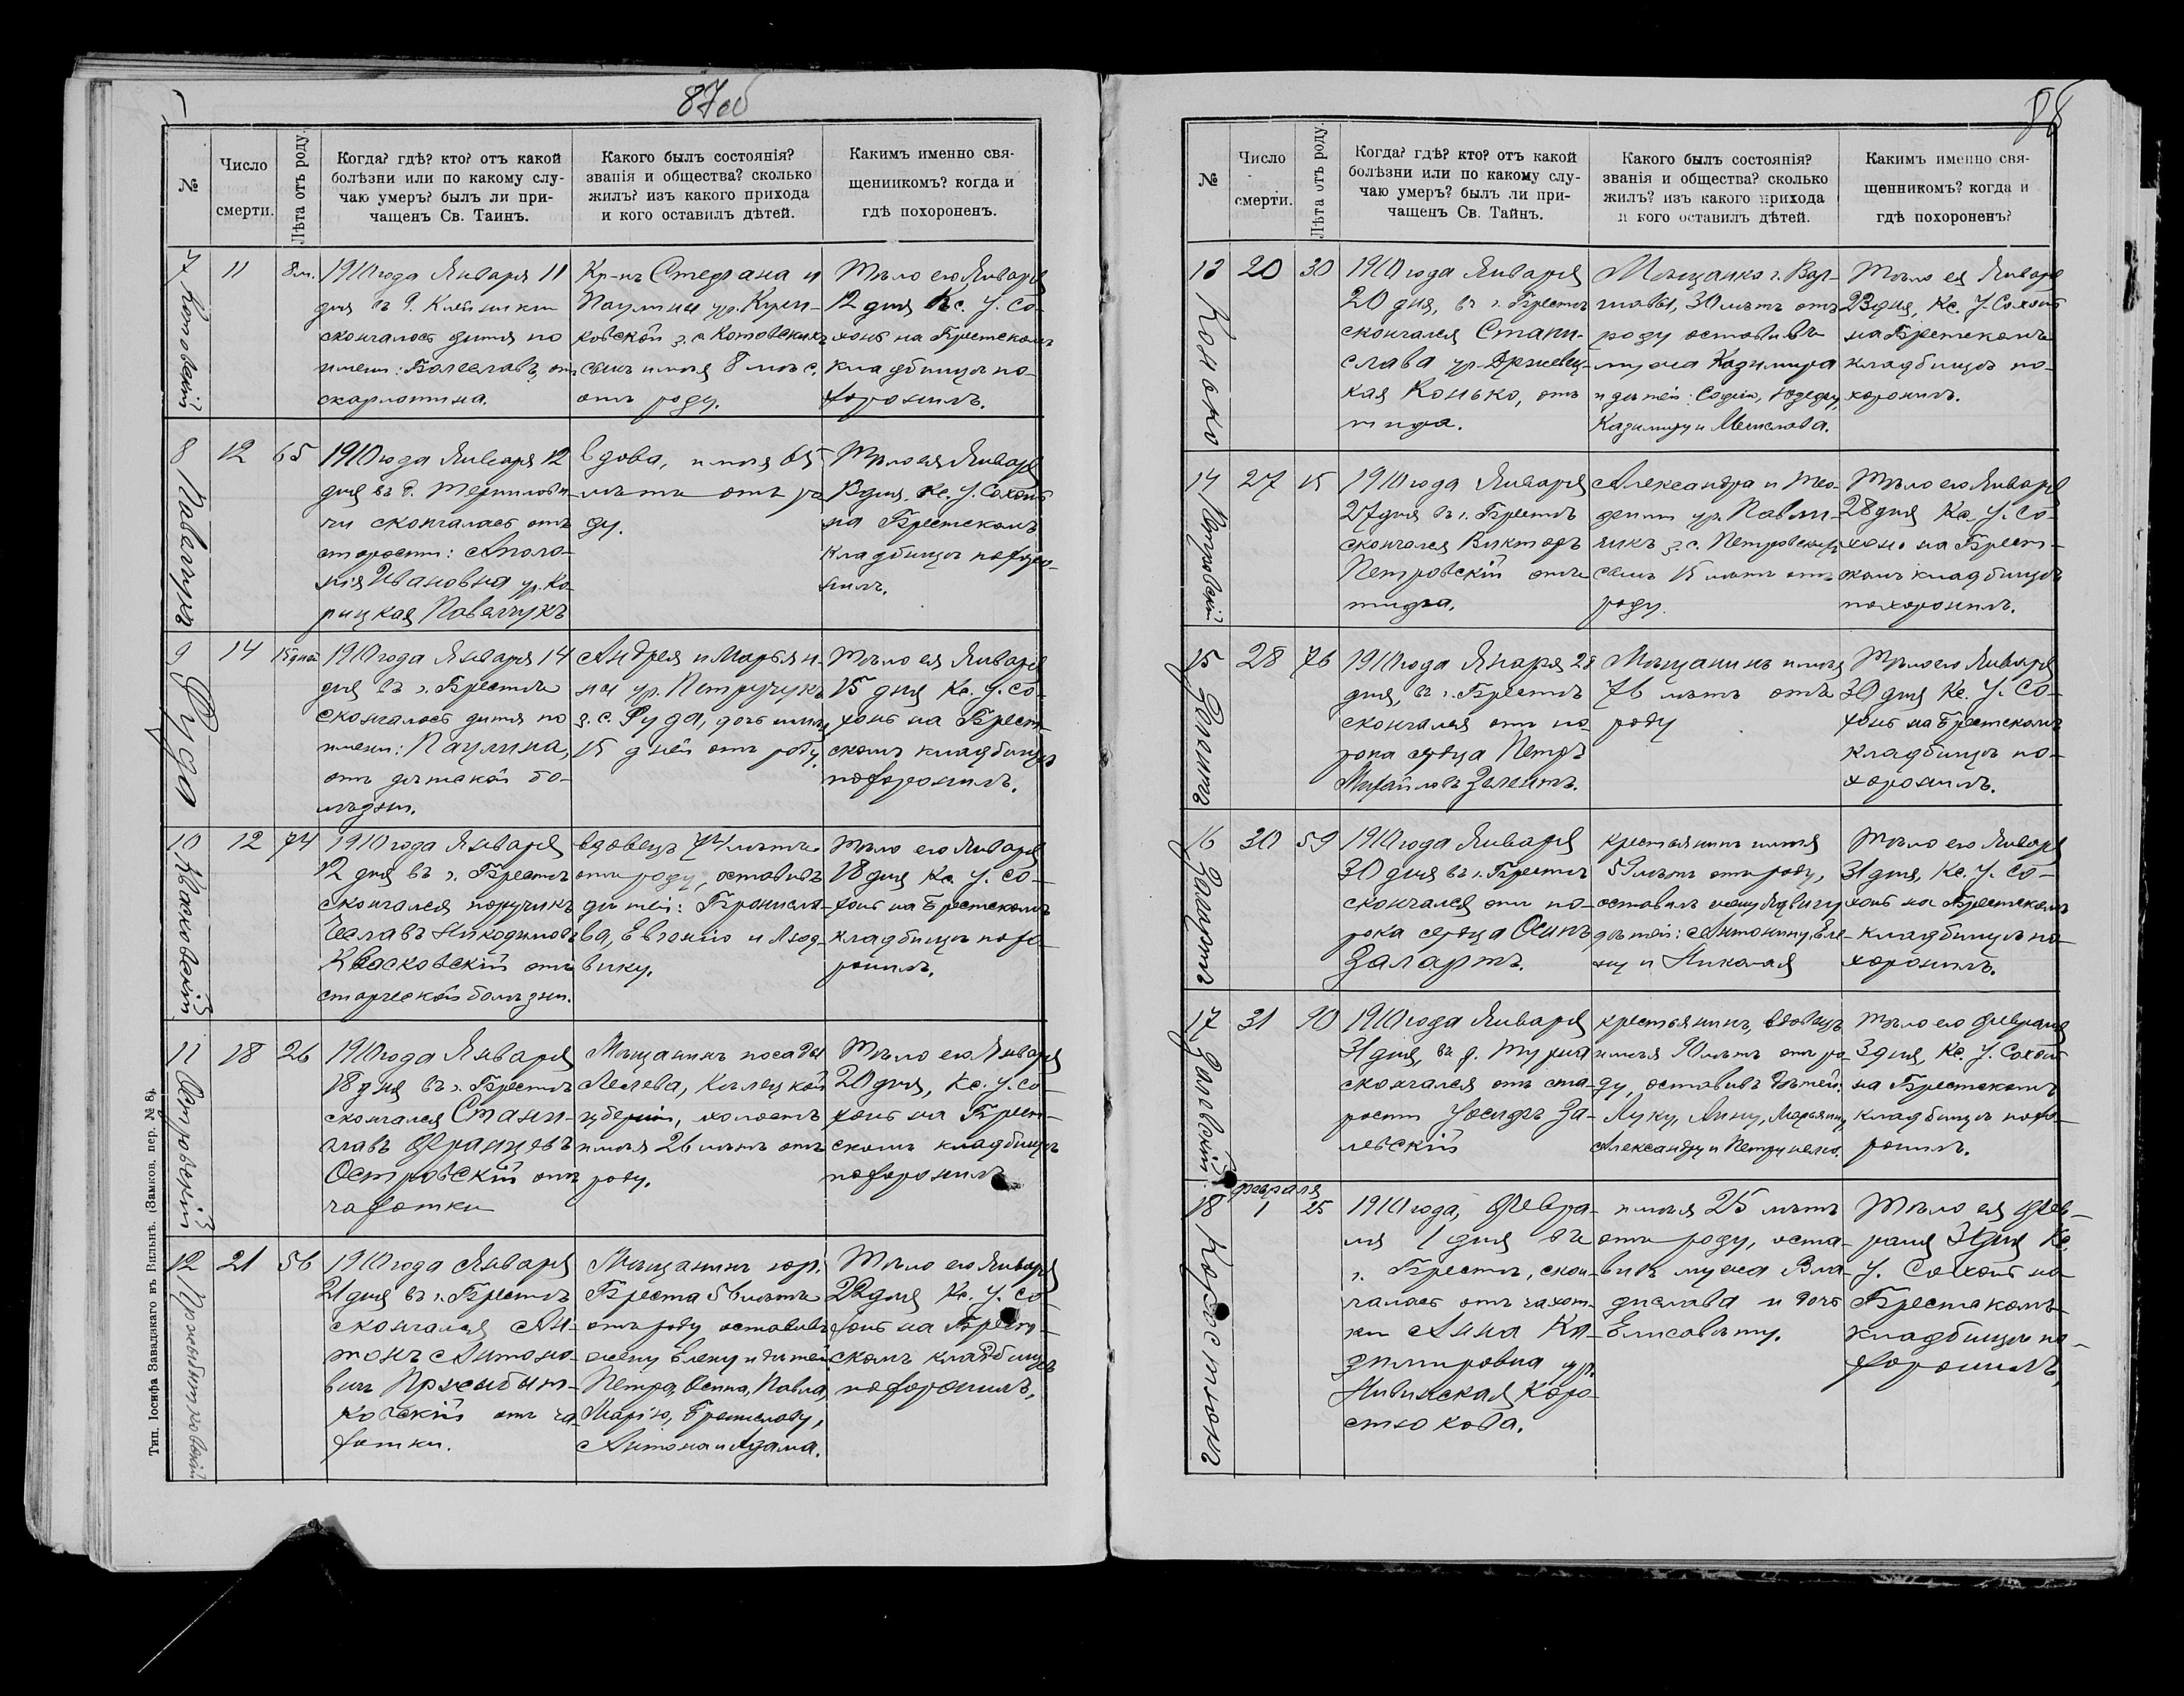 87об
№
Число
смерти.
Лѣта отъ роду.
Когда? гдѣ? кто? отъ какой
болѣзни или по какому слу-
чаю умеръ? былъ ли при-
чащенъ Св. Таинъ.
Какого былъ состоянія?
званія и общества? сколько
жилъ? изъ какого прихода
и кого оставилъ дѣтей.
Какимъ именно свя-
щенникомъ? когда и
гдѣ похороненъ.
7 Котовскій
11
8 м.
1910 года Января 11
дня въ д. Клейники
скончалось дитя по
имени: Болеславъ, отъ
скарлатина.
Кр-нъ Стефана и
Паулины ур.
з. с. Котовскихъ
сынъ имѣя 8 мѣс.
отъ роду.
Тѣло его Января
12 дня Кс. У. Со-
хонь на Брестскомъ
кладбищѣ по-
хоронилъ.
8 Павальчукъ
12
65
1910 года Января 12
дня въ д.
скончалась отъ
старости: Аполо-
нія Ивановна ур. Ко-
рицкая Павальчукъ
Вдова, имѣя 65
лѣтъ отъ ро
ду.
Тѣло ея Января
13 дня. Кс. У. Сохонь
на Брестскомъ
кладбищѣ похоро-
нилъ.
9 Руда
14
15 дней
1910 года Января 14
дня въ г. Брестѣ
скончалась дитя по
имени: Паулина,
отъ дѣтской бо-
лѣзни.
Андрея и Марьян-
ны ур. Петручукъ
з. с. Руда, дочь имѣя
15 дней отъ роду.
Тѣло ея Января
15 дня Кс. У. Со-
хонь на Брест-
скомъ кладбищѣ
похоронилъ.
10 Квасковскій
12
74
1910 года Января
12 дня въ г. Брестѣ
скончался поручикъ
Чеславъ Никодимовъ
Квасковскій отъ
старческой болѣзни.
вдовецъ 74 лѣтъ
отъ роду, оставивъ
дѣтей: Бронисла-
ва, Евгенію и Люд-
вику.
Тѣло его Января
18 дня Кс. У. Со-
хонь на Брестскомъ
кладбищѣ похо-
ронилъ.
11 Островскій
18
26
1910 года Января
18 дня въ г. Брестѣ
скончался Стани-
славъ Францевъ
Островскій отъ
чахотки
Мѣщанинъ посады
губерніи, холостъ
имѣя 26 лѣтъ отъ
роду.
Тѣло его Января
20 дня, Кс. У. Со-
хонь на Брест-
скомъ кладбищѣ
похоронилъ
12 Пржибытковскій
21
56
1910 года Января
21 дня въ г. Брестѣ
скончался Ан-
тонъ Антоно-
вичъ Пржибыт-
ковскій отъ ча-
хотки.
Мѣщанинъ гор.
Бреста 56 лѣтъ
отъ роду оставивъ
жену Елену и дѣтей
Петра, Осипа, Павла,
Марію, Брониславу,
Антона и Адама.
Тѣло его Января
22 дня Кс. У. Со
хонь на Брест-
скомъ кладбищѣ
похоронилъ.
Тип. Іосифа Завадзкаго въ Вильнѣ. (Замков. пер. № 8).
88
№
Число
смерти.
Лѣта отъ роду.
Когда? гдѣ? кто? отъ какой
болѣзни или по какому слу-
чаю умеръ? былъ ли при-
чащенъ Св. Тайнъ.
Какого былъ состоянія?
званія и общества? сколько
жилъ? изъ какого прихода
и кого оставилъ дѣтей.
Какимъ именно свя-
щенникомъ? когда и
гдѣ похороненъ?
13 Конько
20
30
1910 года Января
20 дня, въ г. Брестѣ
скончался Стани-
слава ур. Држевец-
кая Конько, отъ
тифа.
Мѣщанка г. Вар-
шавы, 30 лѣтъ отъ
роду оставивъ
мужа Казимира
и дѣтей: Софію, Юзефу,
Казимиру и Мечислава.
Тѣло ея Января
23 дня, Кс. У. Сохонь
на Брестскомъ
кладбищѣ по-
хоронилъ.
14 Петровскій
27
15
1910 года Января
27 дня въ г. Брестѣ
скончался Викторъ
Петровскій отъ
тифа.
Александра и Тео-
ур. Павлю-
чикъ з. с. Петровскихъ
сынъ 15 лѣтъ отъ
роду.
Тѣло его Января
28 дня Кс. У. Со-
хонь на Брест-
скомъ кладбищѣ
похоронилъ.
15 Зелентъ
28
76
1910 года Янаря 28
дня, въ г. Брестѣ
скончался отъ по-
рока сердца Петръ
Михайловъ Зелентъ.
Мѣщанинъ имѣя
76 лѣтъ отъ
роду
Тѣло его Января
30 дня Кс. У. Со-
хонь на Брестскомъ
кладбищѣ по-
хоронилъ.
16 Залартъ
30
59
1910 года Января
30 дня въ г. Брестѣ
скончался отъ по-
рока сердца Осипъ
Залартъ.
крестьянинъ имѣя
59 лѣтъ отъ роду,
оставилъ жену Ядвигу
дѣтей: Антонину, Еле-
ну и Николая
Тѣло его Января
31 дня, Кс. У. Со-
хонь на Брестскомъ
кладбищѣ по-
хоронилъ.
17 Залевскій
31
90
1910 года Января
31 дня, въ д. Турна
скончался отъ ста-
рости Іосифъ За-
левскій
крестьянинъ, вдовецъ
имѣя 90 лѣтъ отъ ро-
ду, оставивъ дѣтей:
Луку, Анну, Марьянну,
Александру и Петрунелю.
Тѣло его Февраля
3 дня, Кс. У. Сохонь
на Брестскомъ
кладбищѣ похо-
ронилъ.
18 Коростюкъ
февраля
1
25
1910 года, Февра-
ля 1 дня въ
г. Брестѣ, скон-
чалась отъ чахот-
ки Анна Ка-
зимировна ур.
Нивинская Коро-
стюкова.
имѣя 25 лѣтъ
отъ роду, оста-
вивъ мужа Вла-
дислава и дочь
Елисавету.
Тѣло ея Фев-
раля 3 дня Кс.
У. Сохонь на
Брестскомъ
кладбищѣ по-
хоронилъ.